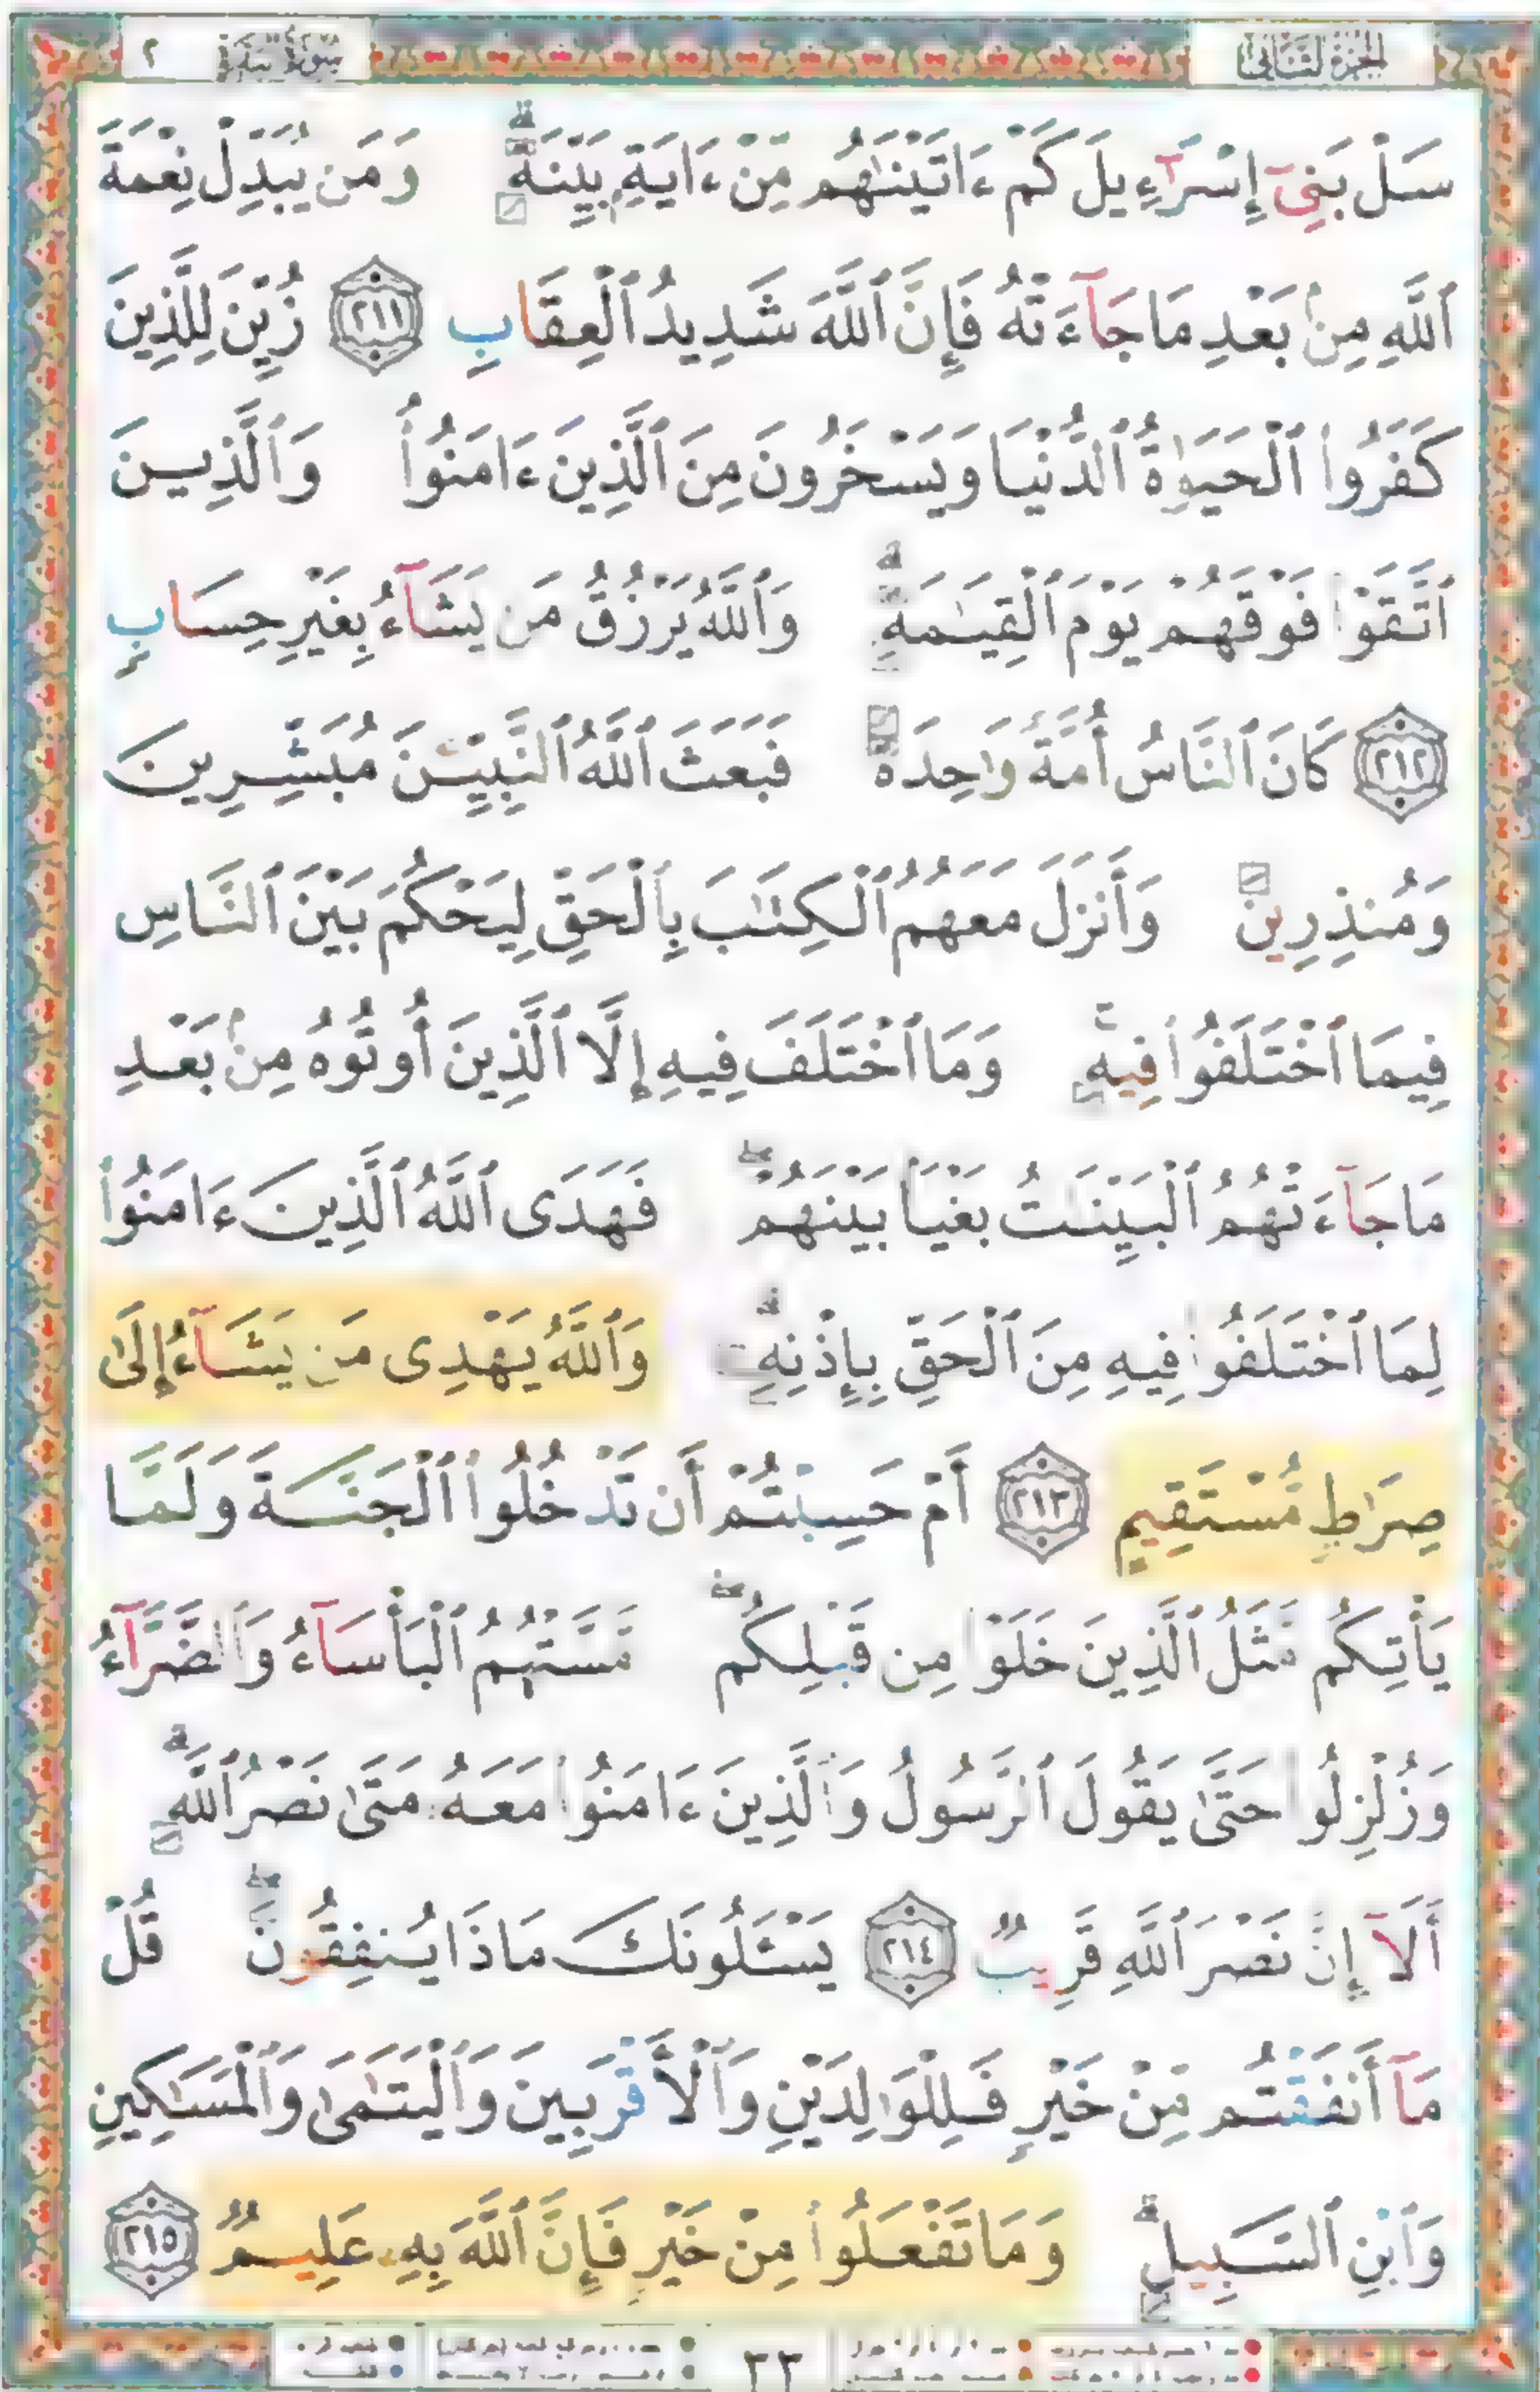 الجزء الثاني
سورة البقرة ٢
سَلْ بَنِىٓ إِسْرَٰٓءِيلَ كَمْ ءَاتَيْنَٰهُم مِّنْ ءَايَةٍۭ بَيِّنَةٍۗ وَمَن يُبَدِّلْ نِعْمَةَ
ٱللَّهِ مِنۢ بَعْدِ مَا جَآءَتْهُ فَإِنَّ ٱللَّهَ شَدِيدُ ٱلْعِقَابِ ٢١١ زُيِّنَ لِلَّذِينَ
كَفَرُوا۟ ٱلْحَيَوٰةُ ٱلدُّنْيَا وَيَسْخَرُونَ مِنَ ٱلَّذِينَ ءَامَنُوا۟ۘ وَٱلَّذِينَ
ٱتَّقَوْا۟ فَوْقَهُمْ يَوْمَ ٱلْقِيَٰمَةِۗ وَٱللَّهُ يَرْزُقُ مَن يَشَآءُ بِغَيْرِ حِسَابٍ
٢١٢ كَانَ ٱلنَّاسُ أُمَّةً وَٰحِدَةً فَبَعَثَ ٱللَّهُ ٱلنَّبِيِّـۧنَ مُبَشِّرِينَ
وَمُنذِرِينَ وَأَنزَلَ مَعَهُمُ ٱلْكِتَٰبَ بِٱلْحَقِّ لِيَحْكُمَ بَيْنَ ٱلنَّاسِ
فِيمَا ٱخْتَلَفُوا۟ فِيهِۚ وَمَا ٱخْتَلَفَ فِيهِ إِلَّا ٱلَّذِينَ أُوتُوهُ مِنۢ بَعْدِ
مَا جَآءَتْهُمُ ٱلْبَيِّنَٰتُ بَغْيًۢا بَيْنَهُمْۖ فَهَدَى ٱللَّهُ ٱلَّذِينَ ءَامَنُوا۟
لِمَا ٱخْتَلَفُوا۟ فِيهِ مِنَ ٱلْحَقِّ بِإِذْنِهِۦۗ وَٱللَّهُ يَهْدِى مَن يَشَآءُ إِلَىٰ
صِرَٰطٍ مُّسْتَقِيمٍ ٢١٣ أَمْ حَسِبْتُمْ أَن تَدْخُلُوا۟ ٱلْجَنَّةَ وَلَمَّا
يَأْتِكُم مَّثَلُ ٱلَّذِينَ خَلَوْا۟ مِن قَبْلِكُمۖ مَّسَّتْهُمُ ٱلْبَأْسَآءُ وَٱلضَّرَّآءُ
وَزُلْزِلُوا۟ حَتَّىٰ يَقُولَ ٱلرَّسُولُ وَٱلَّذِينَ ءَامَنُوا۟ مَعَهُۥ مَتَىٰ نَصْرُ ٱللَّهِۗ
أَلَآ إِنَّ نَصْرَ ٱللَّهِ قَرِيبٌ ٢١٤ يَسْـَٔلُونَكَ مَاذَا يُنفِقُونَۖ قُلْ
مَآ أَنفَقْتُم مِّنْ خَيْرٍ فَلِلْوَٰلِدَيْنِ وَٱلْأَقْرَبِينَ وَٱلْيَتَٰمَىٰ وَٱلْمَسَٰكِينِ
وَٱبْنِ ٱلسَّبِيلِۗ وَمَا تَفْعَلُوا۟ مِنْ خَيْرٍ فَإِنَّ ٱللَّهَ بِهِۦ عَلِيمٌ ٢١٥
٣٣